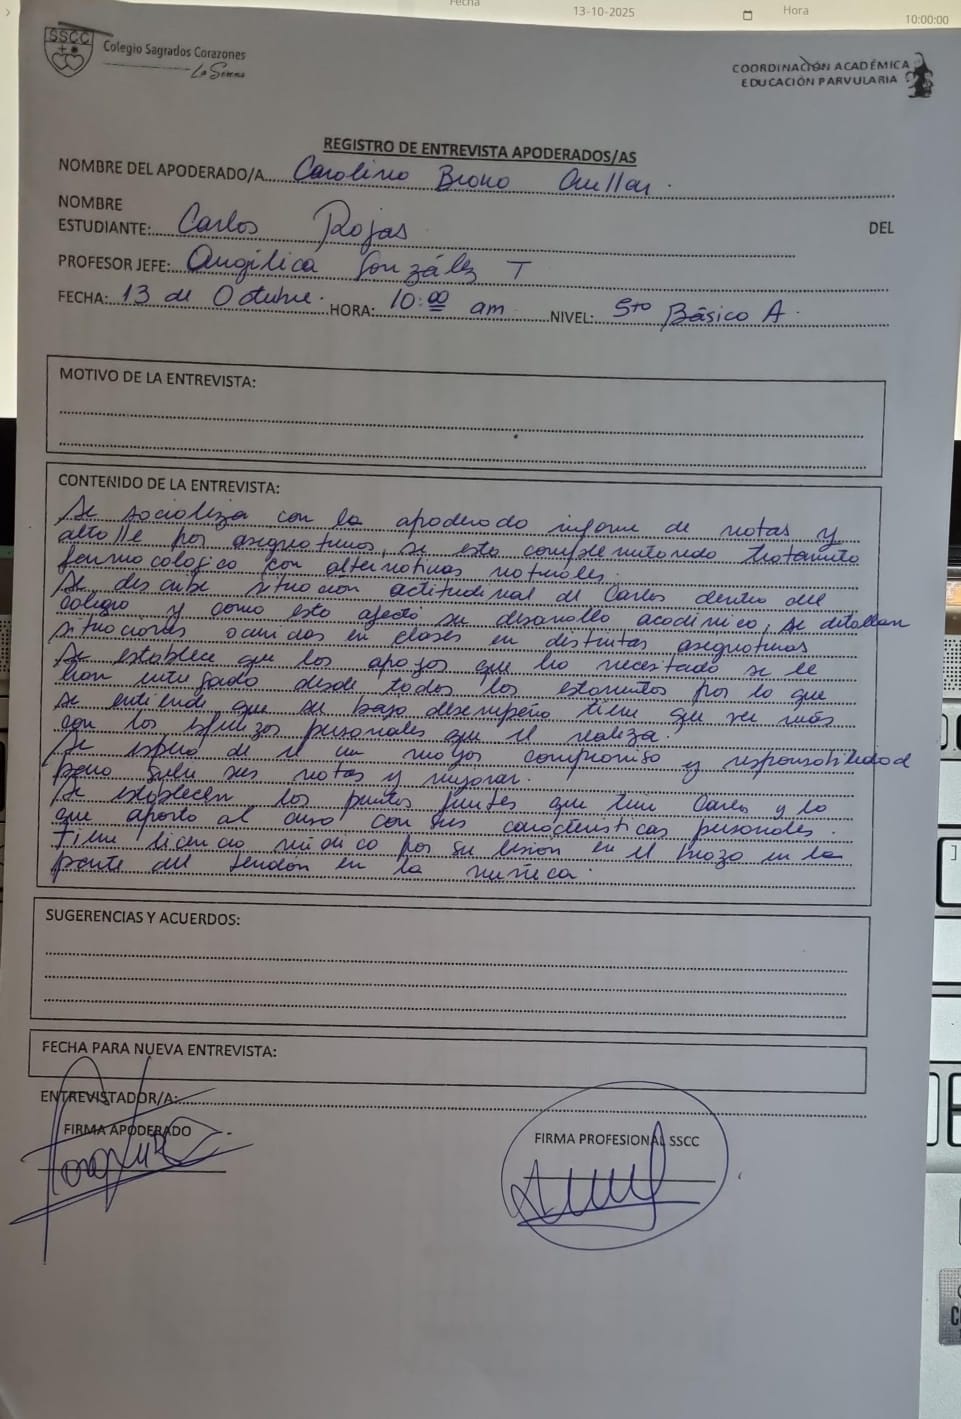 Fecha
13-10-2025
Hora
10:00:00
SSCC
Colegio Sagrados Corazones
La Serena
COORDINACIÓN ACADÉMICA
EDUCACIÓN PARVULARIA
REGISTRO DE ENTREVISTA APODERADOS/AS
NOMBRE DEL APODERADO/A Carolina Bravo Cuellar.
NOMBRE
ESTUDIANTE: Carlos Rojas DEL
PROFESOR JEFE: Angélica González T
FECHA: 13 de Octubre. HORA: 10:00 am NIVEL: 5to Básico A.
MOTIVO DE LA ENTREVISTA:
CONTENIDO DE LA ENTREVISTA:
Se socializa con la apoderado informe de notas y
detalle por asignaturas, se esta complementando tratamiento
farmacológico con alternativas naturales.
Se describe situación actitudinal de Carlos dentro del
colegio y como esto afecta su desarrollo académico, se detallan
situaciones ocurridas en clases en distintas asignaturas
Se establece que los apoyos que ha necesitado se le
han entregado desde todos los estamentos por lo que
se entiende que su bajo desempeño tiene que ver más
con los esfuerzos personales que él realiza.
Se espera de él un mayor compromiso y responsabilidad
para subir sus notas y mejorar.
Se establecen los puntos fuertes que tiene Carlos y lo
que aporta al curso con sus características personales.
Tiene licencia médica por su lesión en el brazo en la
parte del tendón en la muñeca.
SUGERENCIAS Y ACUERDOS:
FECHA PARA NUEVA ENTREVISTA:
ENTREVISTADOR/A:
FIRMA APODERADO
FIRMA PROFESIONAL SSCC